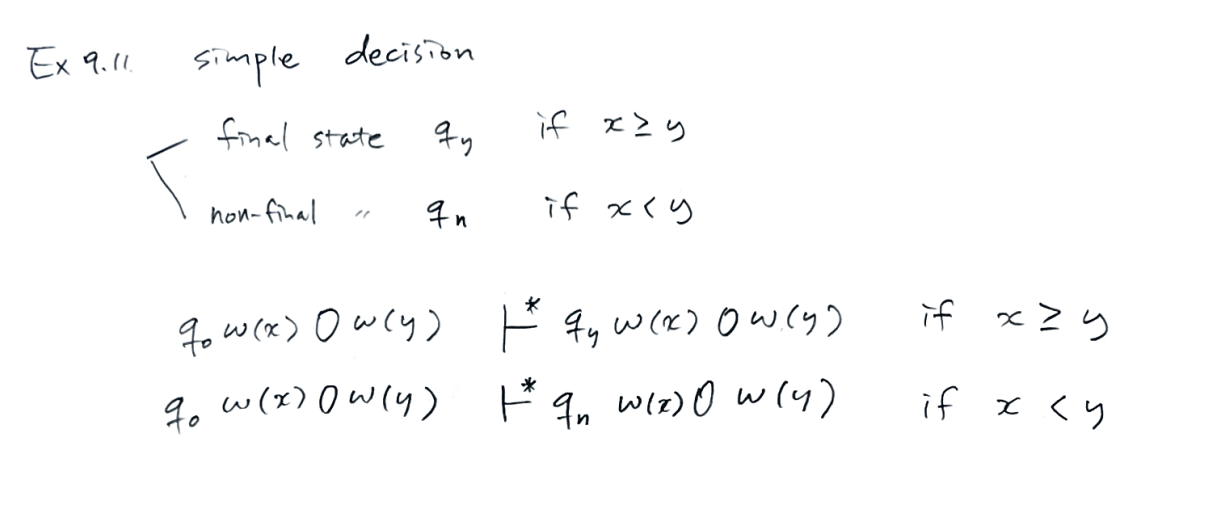 Ex 9.11. simple decision
final state q_y if x ≥ y
non-final 〃 q_n if x < y
q_0 w(x) 0 w(y) ⊢* q_y w(x) 0 w(y) if x ≥ y
q_0 w(x) 0 w(y) ⊢* q_n w(x) 0 w(y) if x < y